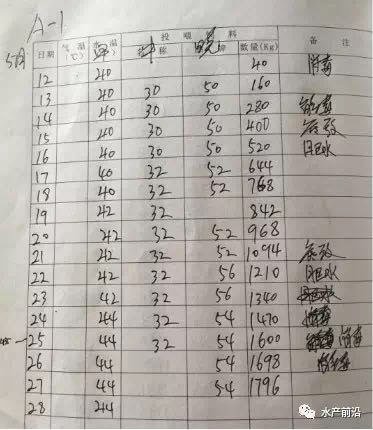 A-1
5月
日期 气温(℃) 水温 投喂饲料 数量(Kg) 备注
早 晚
12 40 40 消毒
13 40 30 50 160
14 40 30 50 280
15 40 30 50 400 底改
16 40 30 50 520 肥水
17 40 32 52 644
18 40 32 52 768
19 42 32 842
20 42 32 52 968
21 42 32 52 1094 底改
22 42 32 56 1210 肥水
23 42 32 56 1340 肥水
24 44 32 54 1470 消毒
25 44 32 54 1600 消毒
26 44 54 1698
27 44 54 1796
28 44
水产前沿